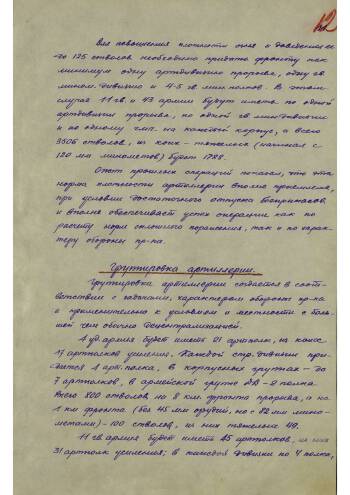 12
Для повышения плотности огня и доведения ее
до 125 стволов необходимо придать фронту как
минимум одну артдивизию прорыва, одну гв.
мином. дивизию и 4-5 гв. мин. полков. В этом
случае 11 гв. и 43 армии будут иметь по одной
артдивизии прорыва, по одной гв. миндивизии
и по одному гмп. на каждый корпус, а всего
3505 стволов, из коих - тяжелых (начиная с
120 мм минометов) будет 1788.
Опыт прошлых операций показал, что эта
норма плотности артиллерии вполне приемлема,
при условии достаточного отпуска боеприпасов,
и вполне обеспечивает успех операции как по
расчету норм сплошного поражения, так и по харак-
теру обороны пр-ка.
Группировка артиллерии.
Группировка артиллерии создается в соот-
ветствии с задачами, характером обороны пр-ка
и применительно к условиям и местности с боль-
шей чем обычно децентрализацией.
4 уд. армия будет иметь 21 артполк, из коих
17 артполков усиления. Каждой стр. дивизии при-
дается 1 арт. полка, в корпусных группах - до
7 артполков, в армейской группе ДД - 2 полка
Всего 800 стволов на 8 км. фронта прорыва, а на
1 км фронта (без 45 мм орудий, но с 82 мм мино-
метами) - 100 стволов, из них тяжелых 49.
11 гв. армия будет иметь 45 артполков, из них
31 артполк усиления; в каждой дивизии по 4 полка,